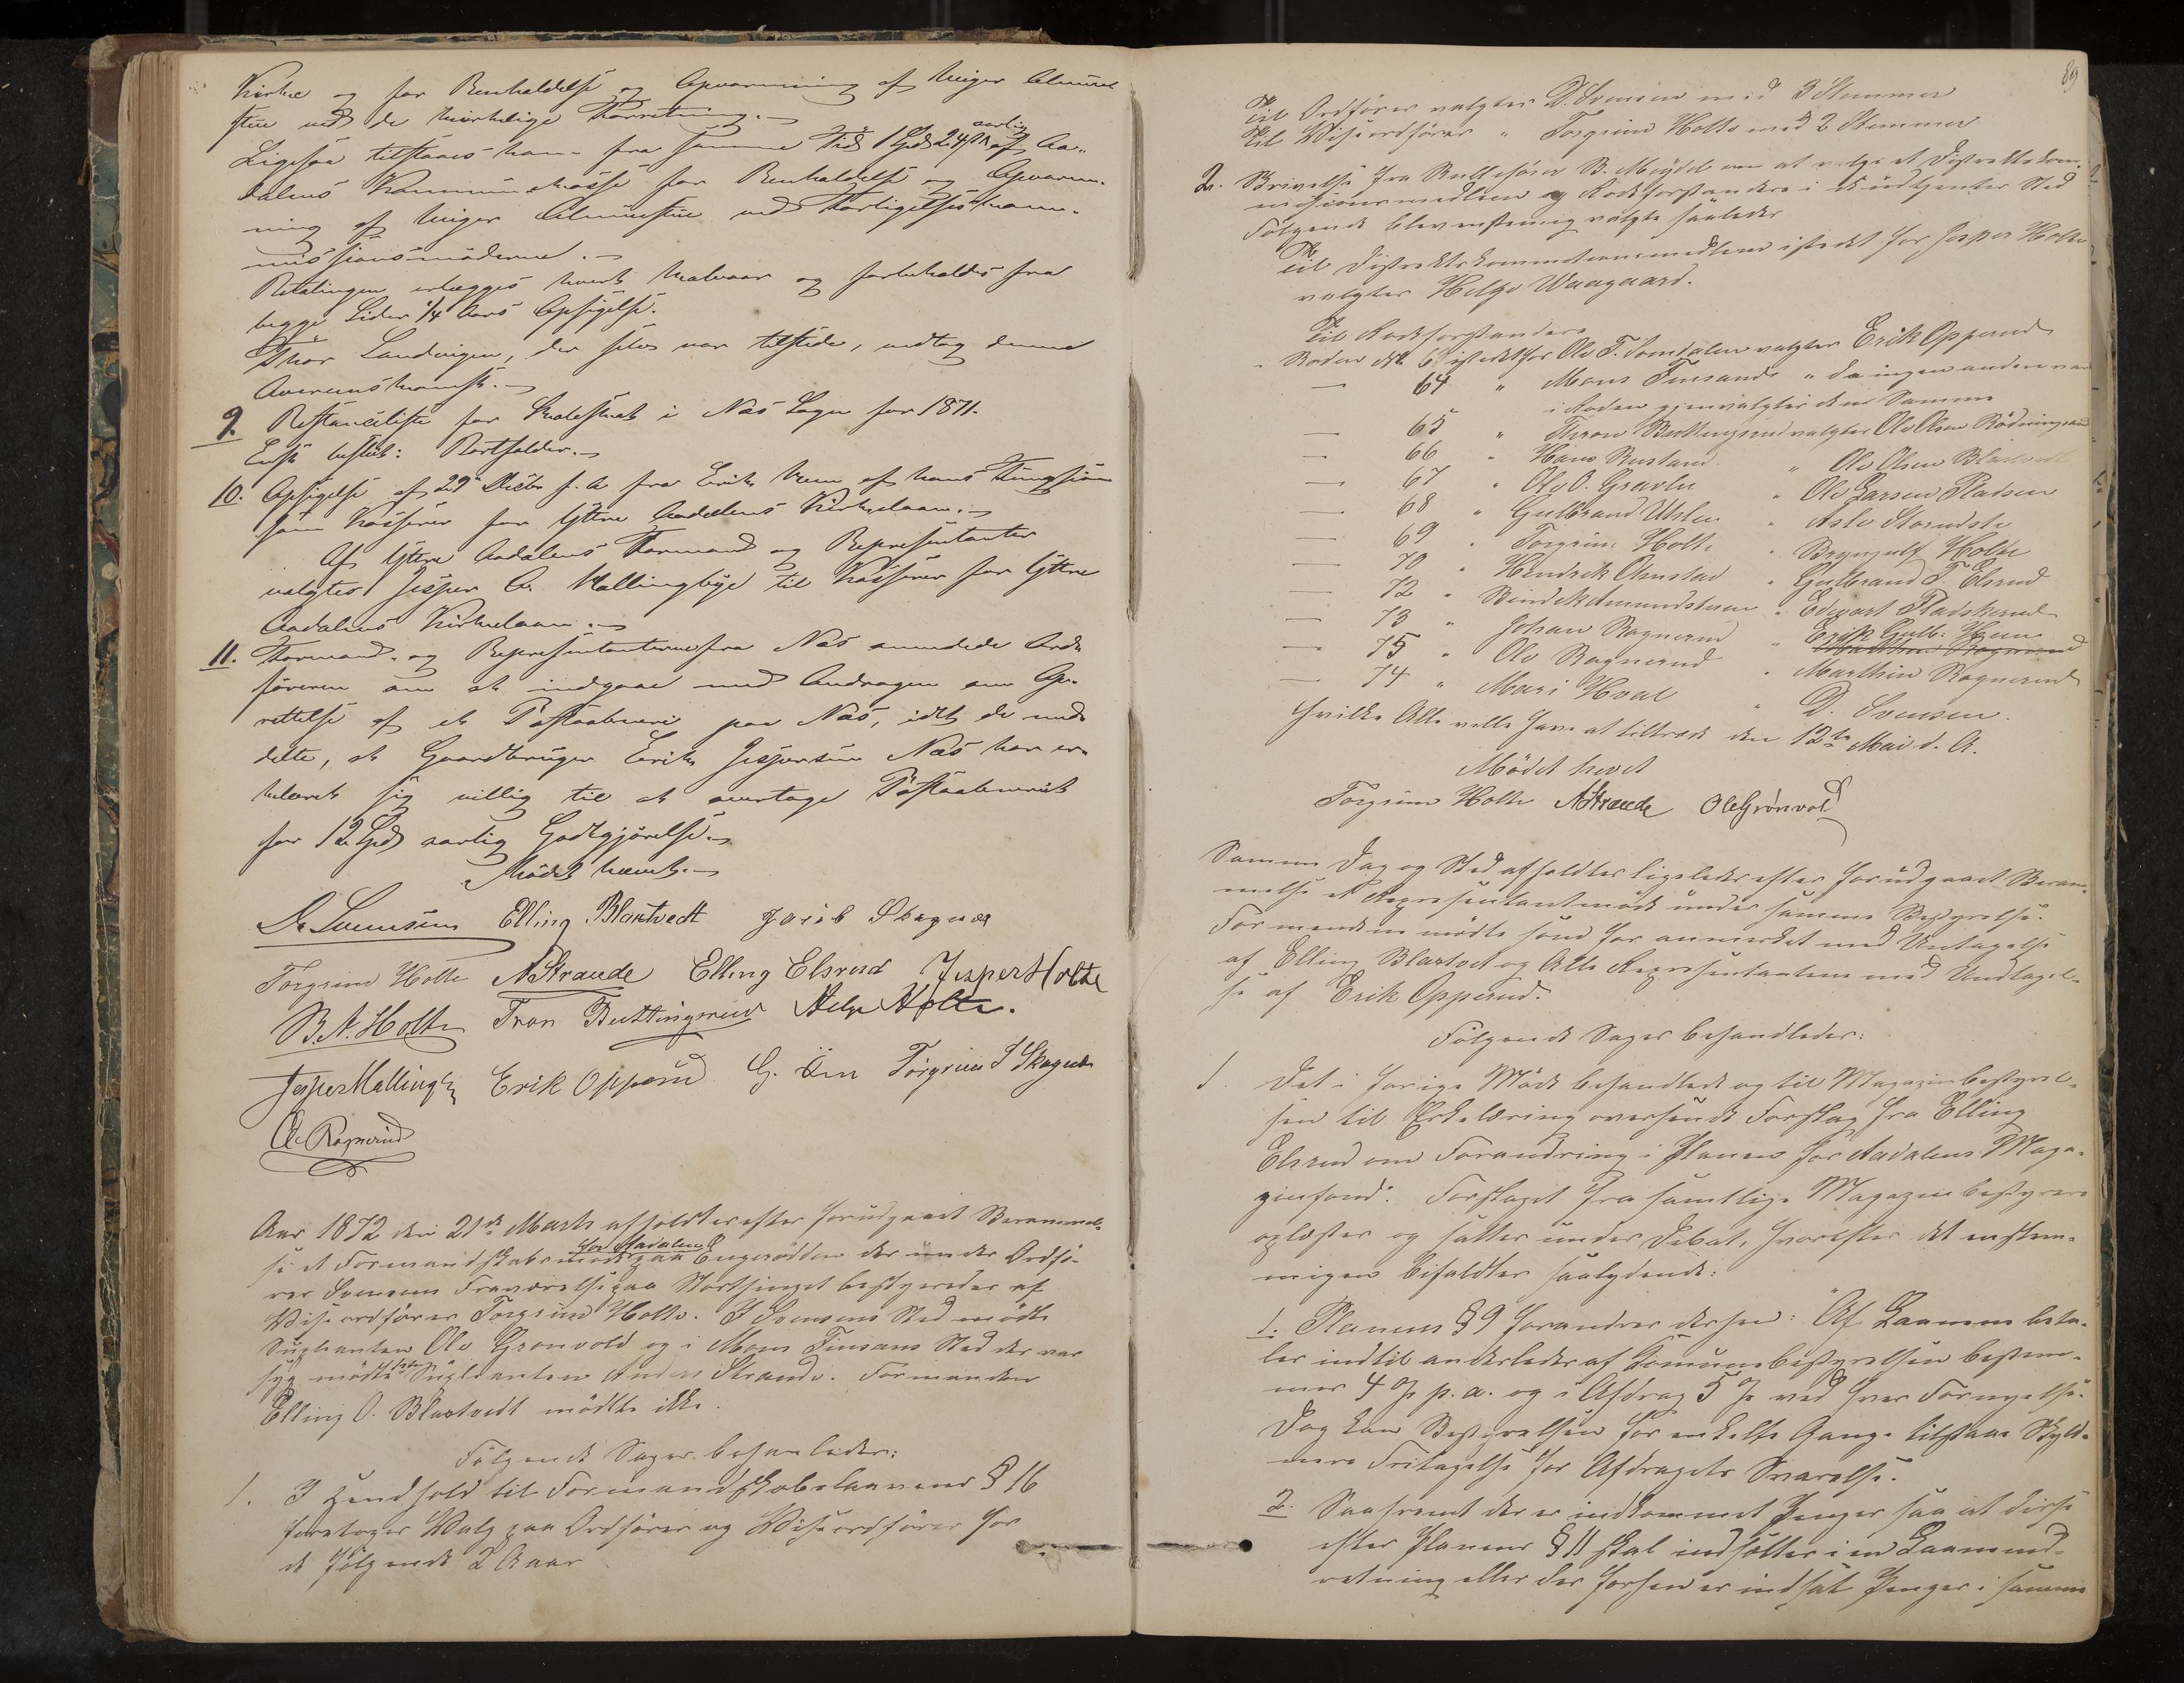 Kirke og for Renholdelse og Opvarmning af Viger Almue
stue ved de kirkelige Forretning.
Ligesaa tilstaaes ham fra samme Tid 1 Spd 24 s aarlig af Aa-
dalens Kommunekasse for Renholdelse og Opvarm-
ning af Viger Almuestue ved Forligelseskom-
missionsmöderne.
Betalingen erlægges hvert Halvaar og forbeholdes fra
begge Sider 1/4 Aars Opsigelse.
Thor Landvigen, der selv var tilstede, vedtog denne
Overenskomst.
9. Restanceliste for Skoleskat i Næs Sogn for 1871.
Enst. beslut: Bortfalder.
10. Opsigelse af 29 Decbr f. A. fra Erik Hem af hans Funktion
som Kasserer for Yttre Aadalens Kirkelaan.
Af Yttre Aadalens Formænd og Repræsentanter
valgtes Jesper A. Hallingbye til Kasserer for Yttre
Aadalens Kirkelaan.
11. Formænd- og Repræsentanterne fra Næs anmodede Ord-
föreren om at indgaae med Andragen om Op-
rettelse af et Postaabneri paa Næs, idet de med-
delte, at Gaardbruger Erik Jespersen Næs har er-
klæret sig villig til at overtage Postaabneriet
for 12 Spd aarlig Godtgjörelse.
Mödet hævet.
D. Svensen Elling Blaktvedt Jacob Skagnæs
Torgrim Holte A Strande Elling Elsrud Jesper Holte
B. A. Holte Tron Buttingsrud Helge Holte.
Jesper Hallingby Erik Opperud G. Torgrim J Skagnæs
O. Ragnerud
Aar 1872 den 21de Marts afholdtes efter forudgaaet Berammel-
se et Formandskabsmöde for Aadalen paa Engerodden der under Ordfö-
rer Svensens Fraværelse paa Storthinget bestyredes af
Viseordförer Torgrim Holte. I Svensens Sted mödte
Supleanten Ole Grönvold og i Mons Finsans Sted der var
syg mödte Supleanten Anders Strande. Formanden
Elling O. Blaktvedt mödte ikke.
Fölgende Sager behanledes:
1. I Henhold til Formandskabslovens § 16
foretoges Valg paa Ordförer og Viseordförer for
de fölgende 2 Aaar
89
Til Ordförer valgtes D. Svensen med 3 Stemmer
Til Viseordförer " Torgrim Holte med 2 Stemmer
2. Skrivelse fra B. Meydel om at velge et Distriktskom-
misionsmedlem og Rodeforstandere i de udtjentes Sted
Fölgende blev enstemig valgte saaledes
Til Distriktskommitionsmedlem istedet for Jesper Holte
valgtes Helge Waagaard.
Til Rodeforstandere
Roden No 6 istedetfor Ole T. Somdalen valgtes Erik Opperud
— 64 " Mons Finsands " da ingen anden var
i Roden gjenvalgtes den Samme
— 65 " Thron Buttingsrud valgtes Ole Olsen Rödningsand
— 66 " Hans Bustand " Ole Olsen Blaktvedt
— 67 " Ole O. Gravli " Ole Larsen Pladsen
— 68 " Gulbrand Uhlen " Asle Storudste
— 69 " Torgrim Holte " Brynjulf Holte
— 70 " Hendrik Amstad " Gulbrand T. Elsrud
— 72 " Bendik Amundstuen " Edevart Pladskerud
— 73 " Johan Ragnerud " Erik Gulb: Hjem
— 75 " Ole Ragnerud " Marthin Ragnerud
— 74 " Mari Hval " D. Svensen.
Hvilke Alle ville have at tiltrede den 12te Mai d. A.
Mödet hevet
Torgrim Holte AStrande Ole Grönvold
Samme Dag og Sted afholdtes ligeledes efter forudgaaet Beram-
melse et Representantmöde under samme Bestyrelse.
Formendene mödte som för anmerket med Undtagelse
af Elling Blaktvet og Alle Representantene med Undtagel-
se af Erik Opperud.
Fölgende Sager behandledes:
1 Det i forrige Möde behandlede og til Magazinbestyrel-
sen til Erklæring oversendte Forslag fra Elling
Elsrud om Forandring i Planen for Aadalens Maga-
zinfond. Forslaget fra samtlige Magazinbestyrere
oplæstes og sattes under Debat, hvorefter det enstem-
migen bifaldtes saalydende:
1. Planens § 9 forandres derhen: "Af Laanene beta-
les indtil anderledes af Komunebestyrelsen bestem-
mes 4 % p. a. og i Afdrag 5 % ved hver Fornyelse.
Dog kan Bestyrelsen for enkelte Gange tilstaae Skyld-
nere Fritagelse for Afdragets Svarelse.
2. Saafremt der er indkommet Penger saa at disse
efter Planens § 11 skal indsættes i en Laanind-
retning eller der forhen er indsat Penger i samme